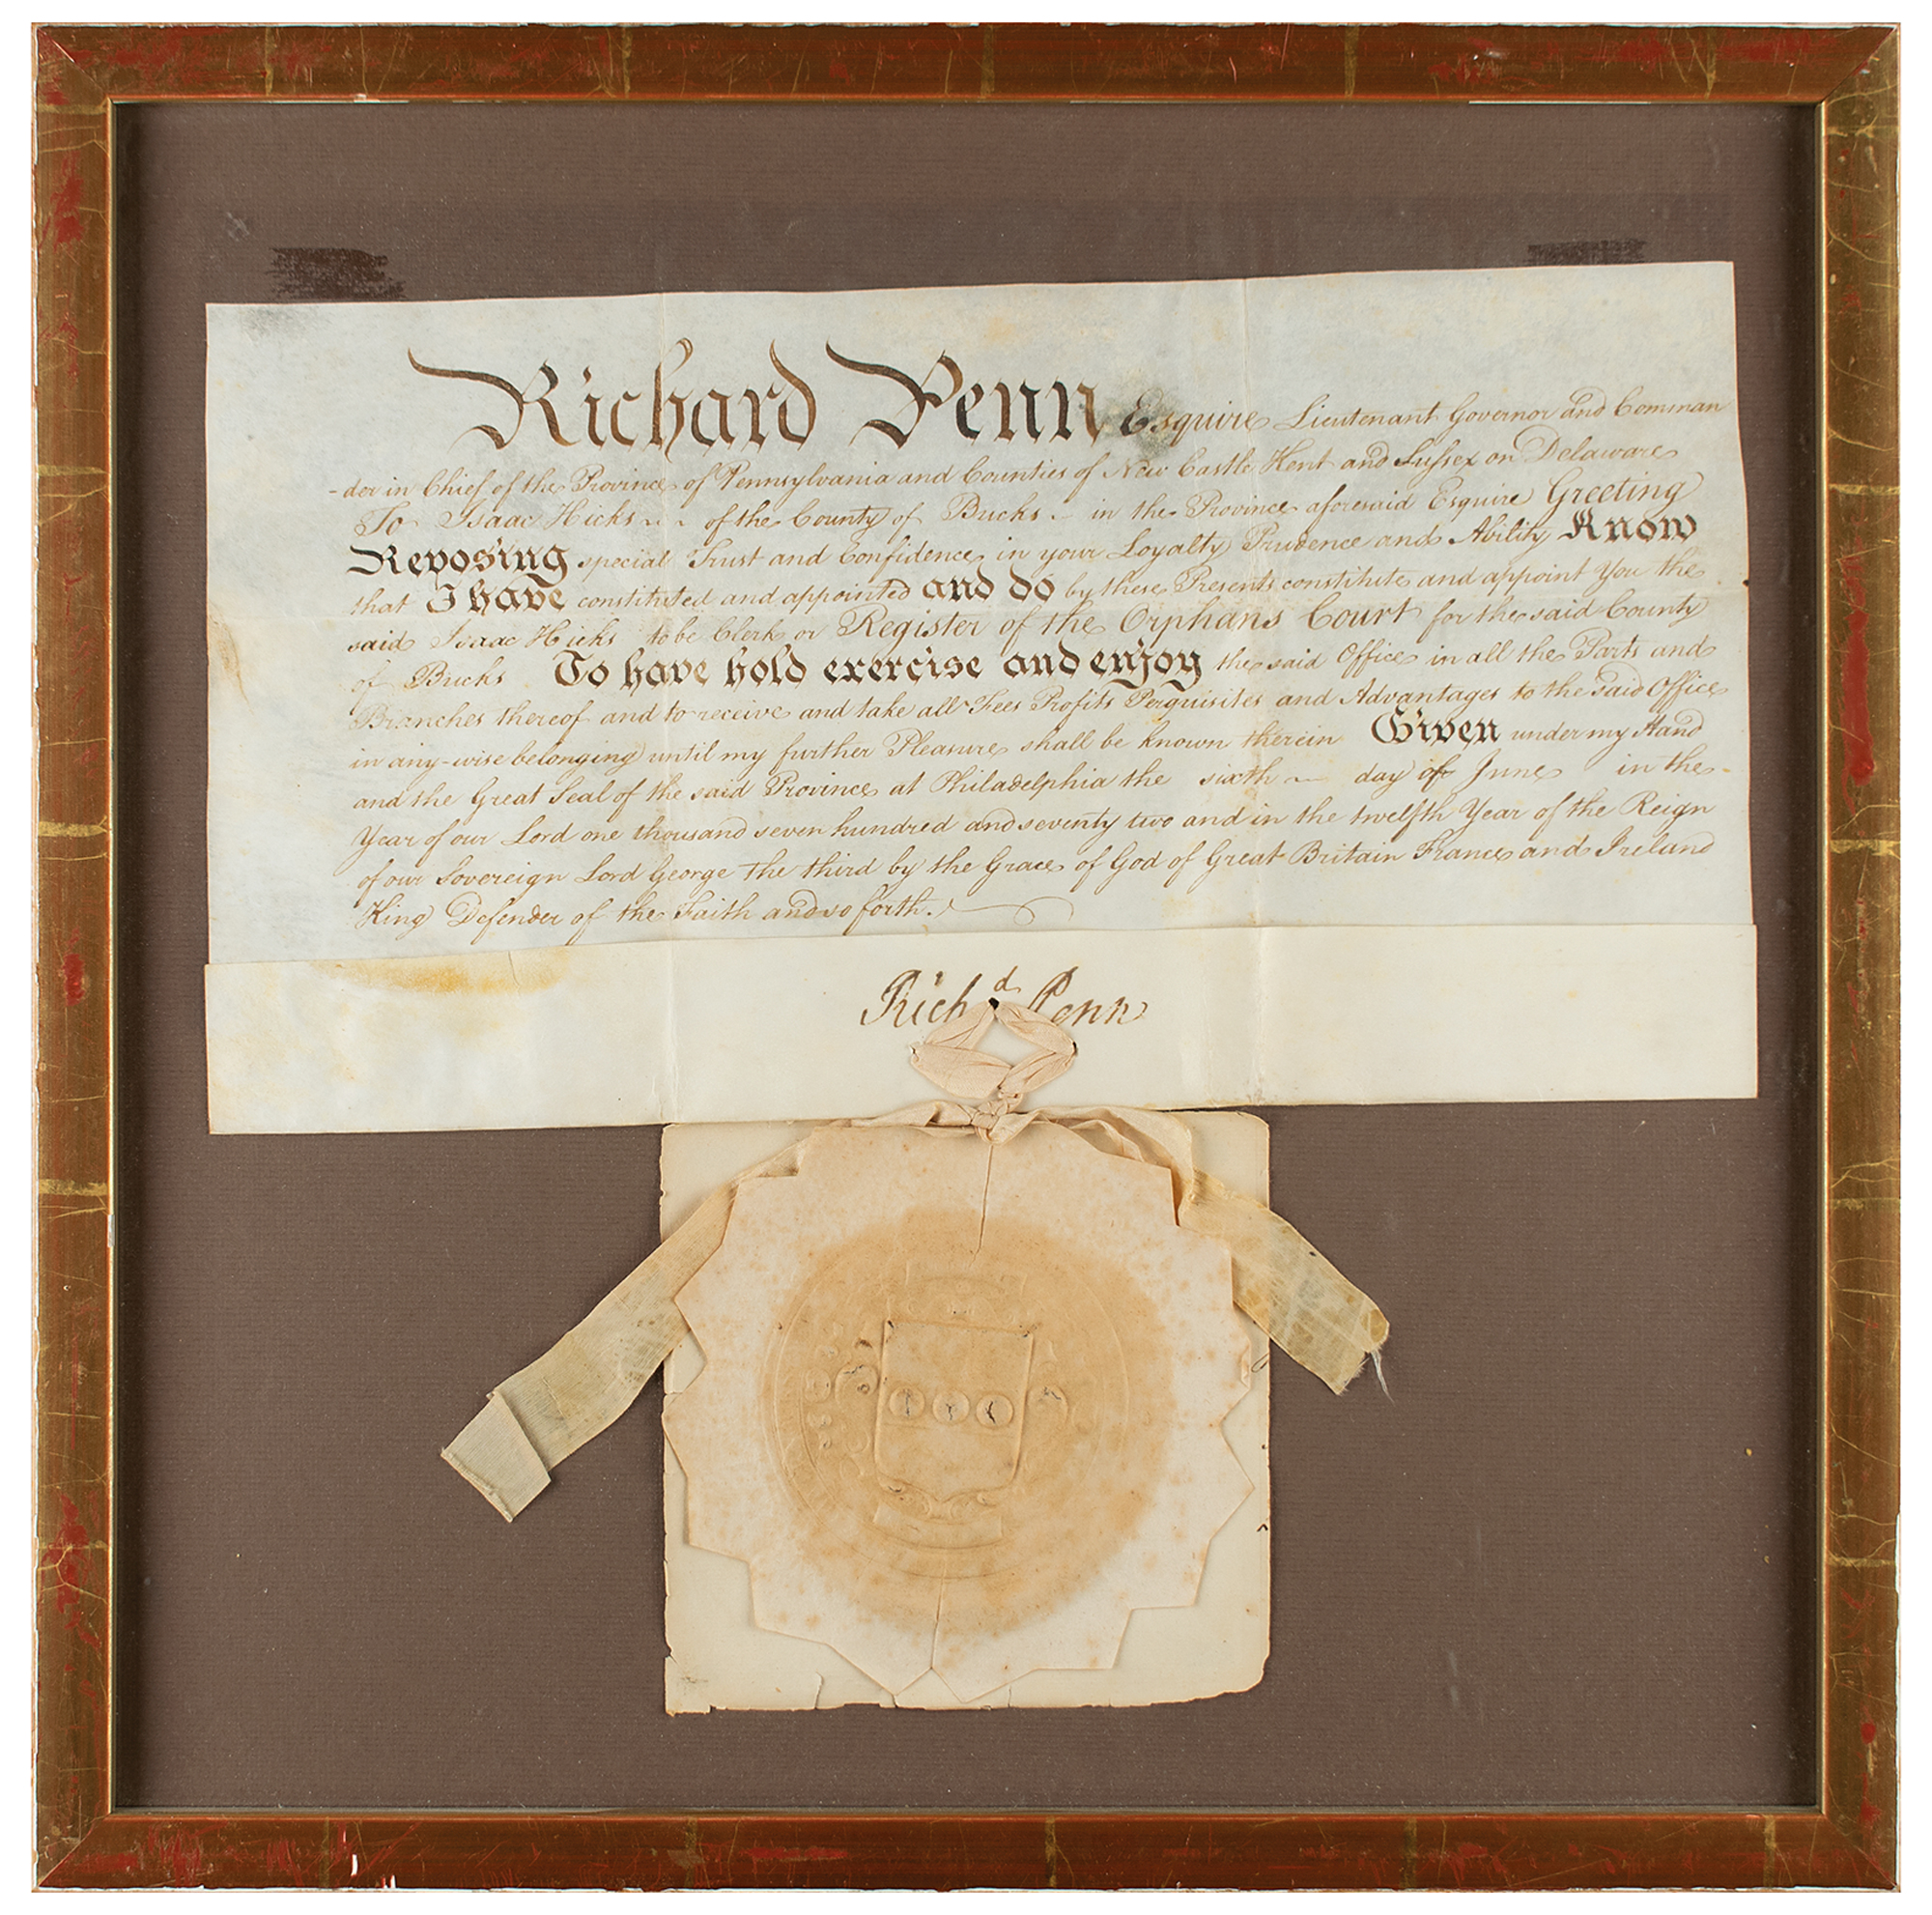 Richard Penn Esquire Lieutenant Governor and Comman
-der in Chief of the Province of Pennsylvania and Counties of New Castle Kent and Sussex on Delaware
To Isaac Hicks of the County of Bucks in the Province aforesaid Esquire Greeting
Reposing special Trust and Confidence in your Loyalty Prudence and Ability Know
that I have constituted and appointed and do by these Presents constitute and appoint You the
said Isaac Hicks to be Clerk or Register of the Orphans Court for the said County
of Bucks To have hold exercise and enjoy the said Office in all the Parts and
Branches thereof and to receive and take all Fees Profits Perquisites and Advantages to the said Office
in any-wise belonging until my further Pleasure shall be known therein Given under my Hand
and the Great Seal of the said Province at Philadelphia the sixth day of June in the
Year of our Lord one thousand seven hundred and seventy two and in the twelfth Year of the Reign
of our Sovereign Lord George the third by the Grace of God of Great Britain France and Ireland
King Defender of the Faith and so forth.
Richd Penn